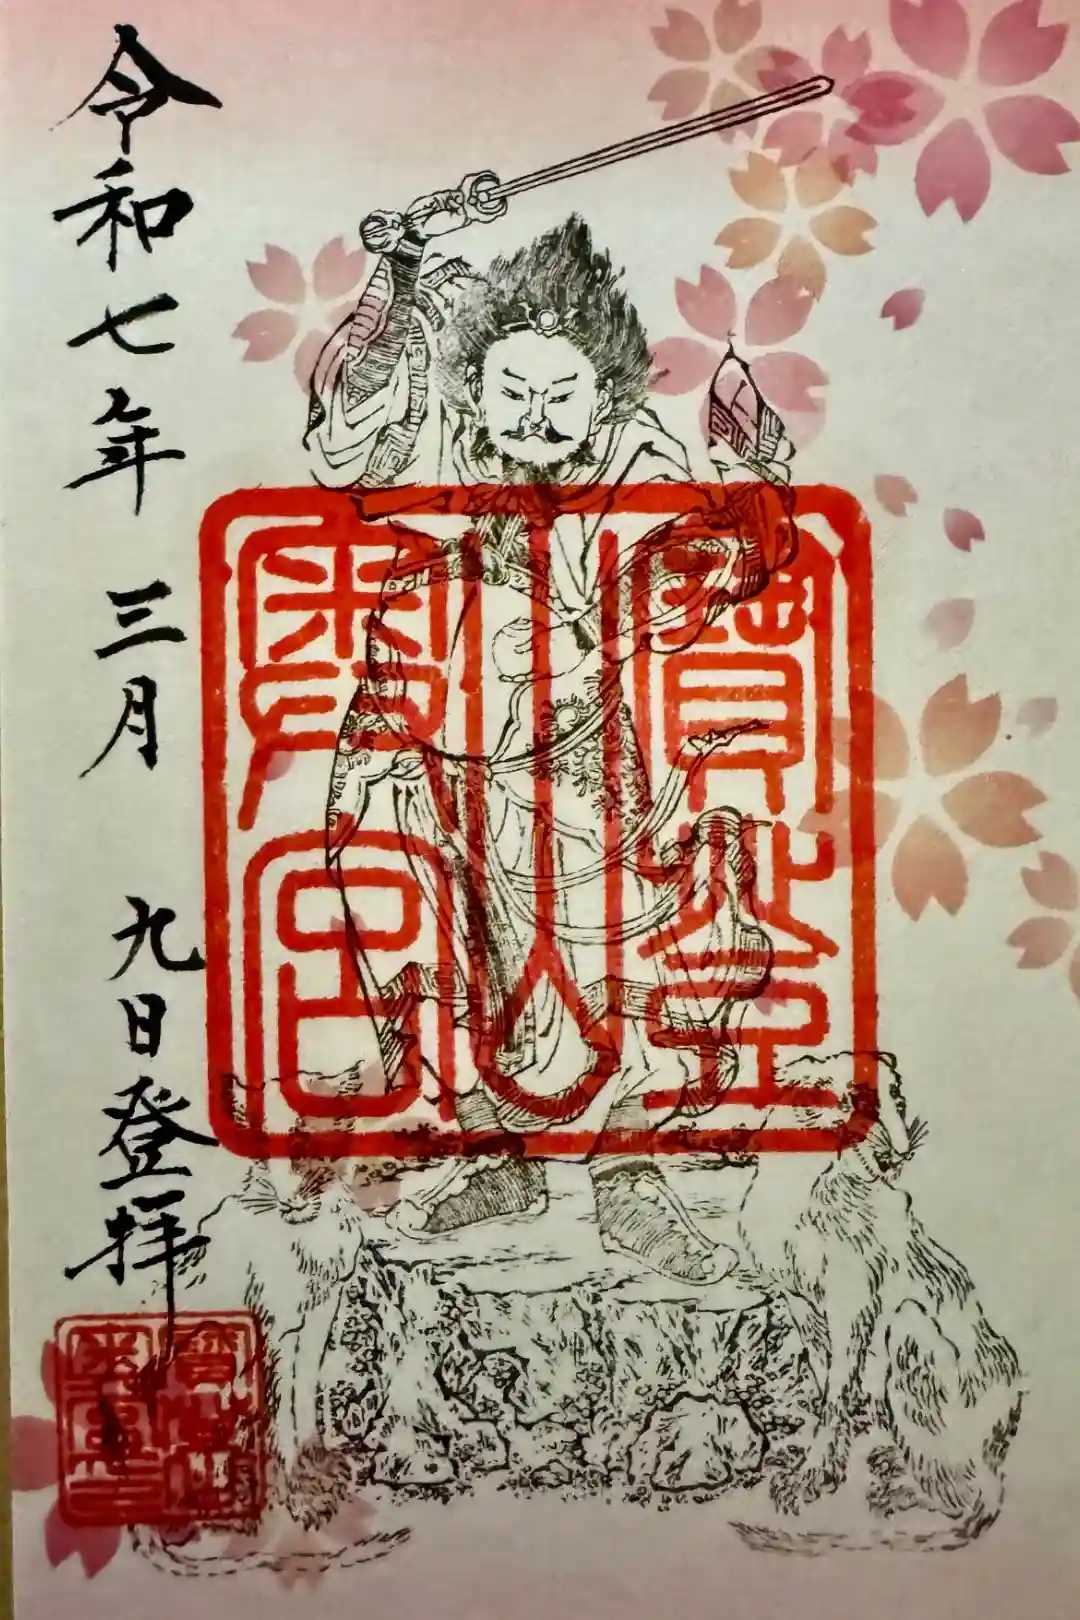 寳登
山
奥宮
令和七年三月九日登拝